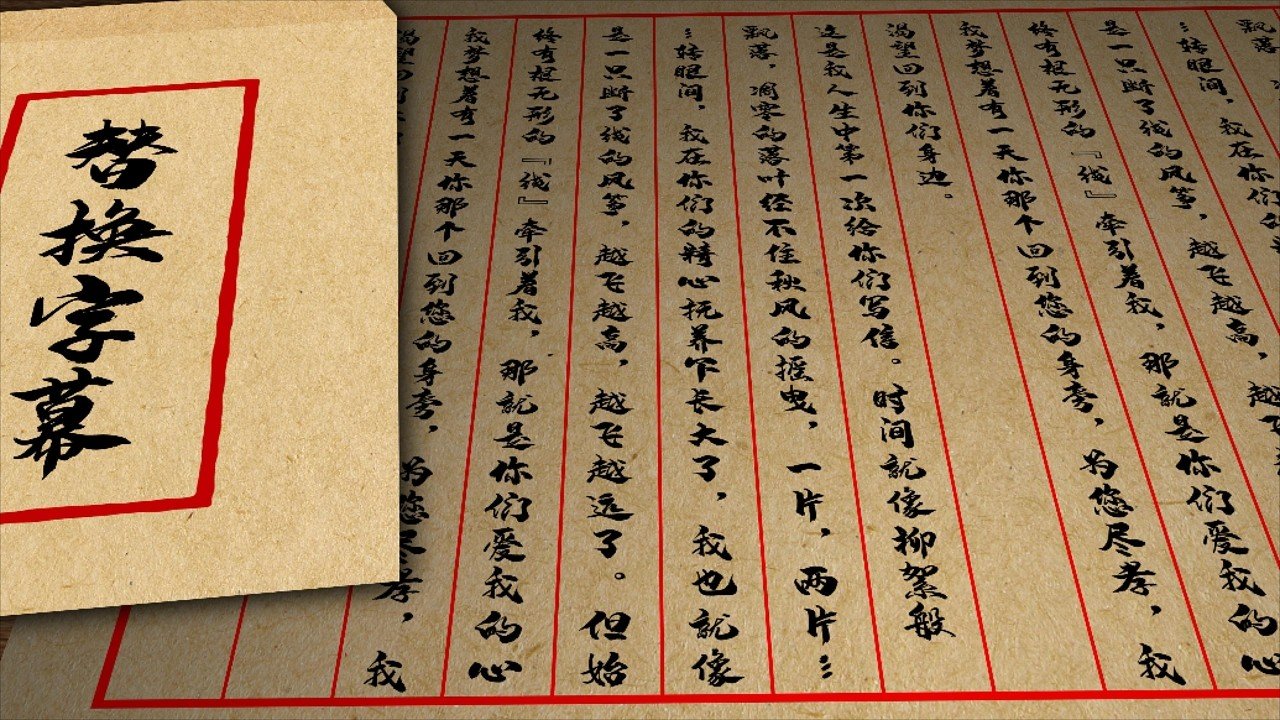 飘落
…转眼间，我在你们的
是一只断了线的风筝，越飞越高，越飞
终有根无形的『线』牵引着我，那就是你们爱我的心
我梦想着有一天你那个回到您的身旁，为您尽孝，我
渴望回到你们身边。
这是我人生中第一次给你们写信。时间就像柳絮般
飘落，凋零的落叶经不住秋风的摇曳，一片，两片…
…转眼间，我在你们的精心抚养下长大了，我也就像
是一只断了线的风筝，越飞越高，越飞越远了。但始
终有根无形的『线』牵引着我，那就是你们爱我的心
我梦想着有一天你那个回到您的身旁，为您尽孝，我
渴望回到
替换字幕